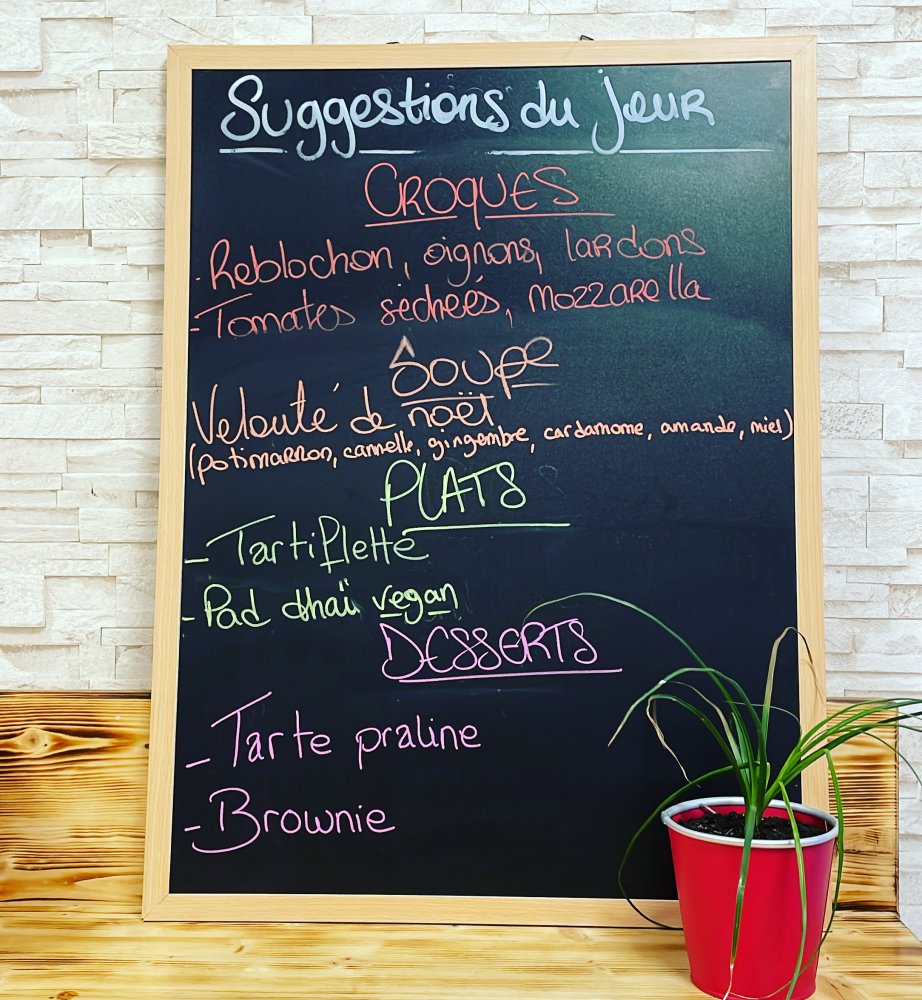 Suggestions du jour
CROQUES
- Reblochon, oignons, lardons
- Tomates séchées, mozzarella
Soupe
Velouté de noël
(potimarron, cannelle, gingembre, cardamome, amande, miel)
PLATS
- Tartiflette
- Pad thaï vegan
DESSERTS
- Tarte praline
- Brownie